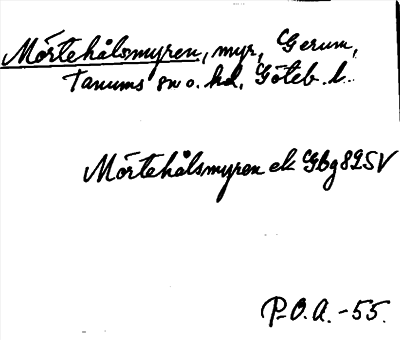 Mörtehålsmyren, myr, Gerum,
Tanums sn o. hd, Göteb. l.
Mörtehålsmyren ek Gbg 82SV
P-O.A. -55.